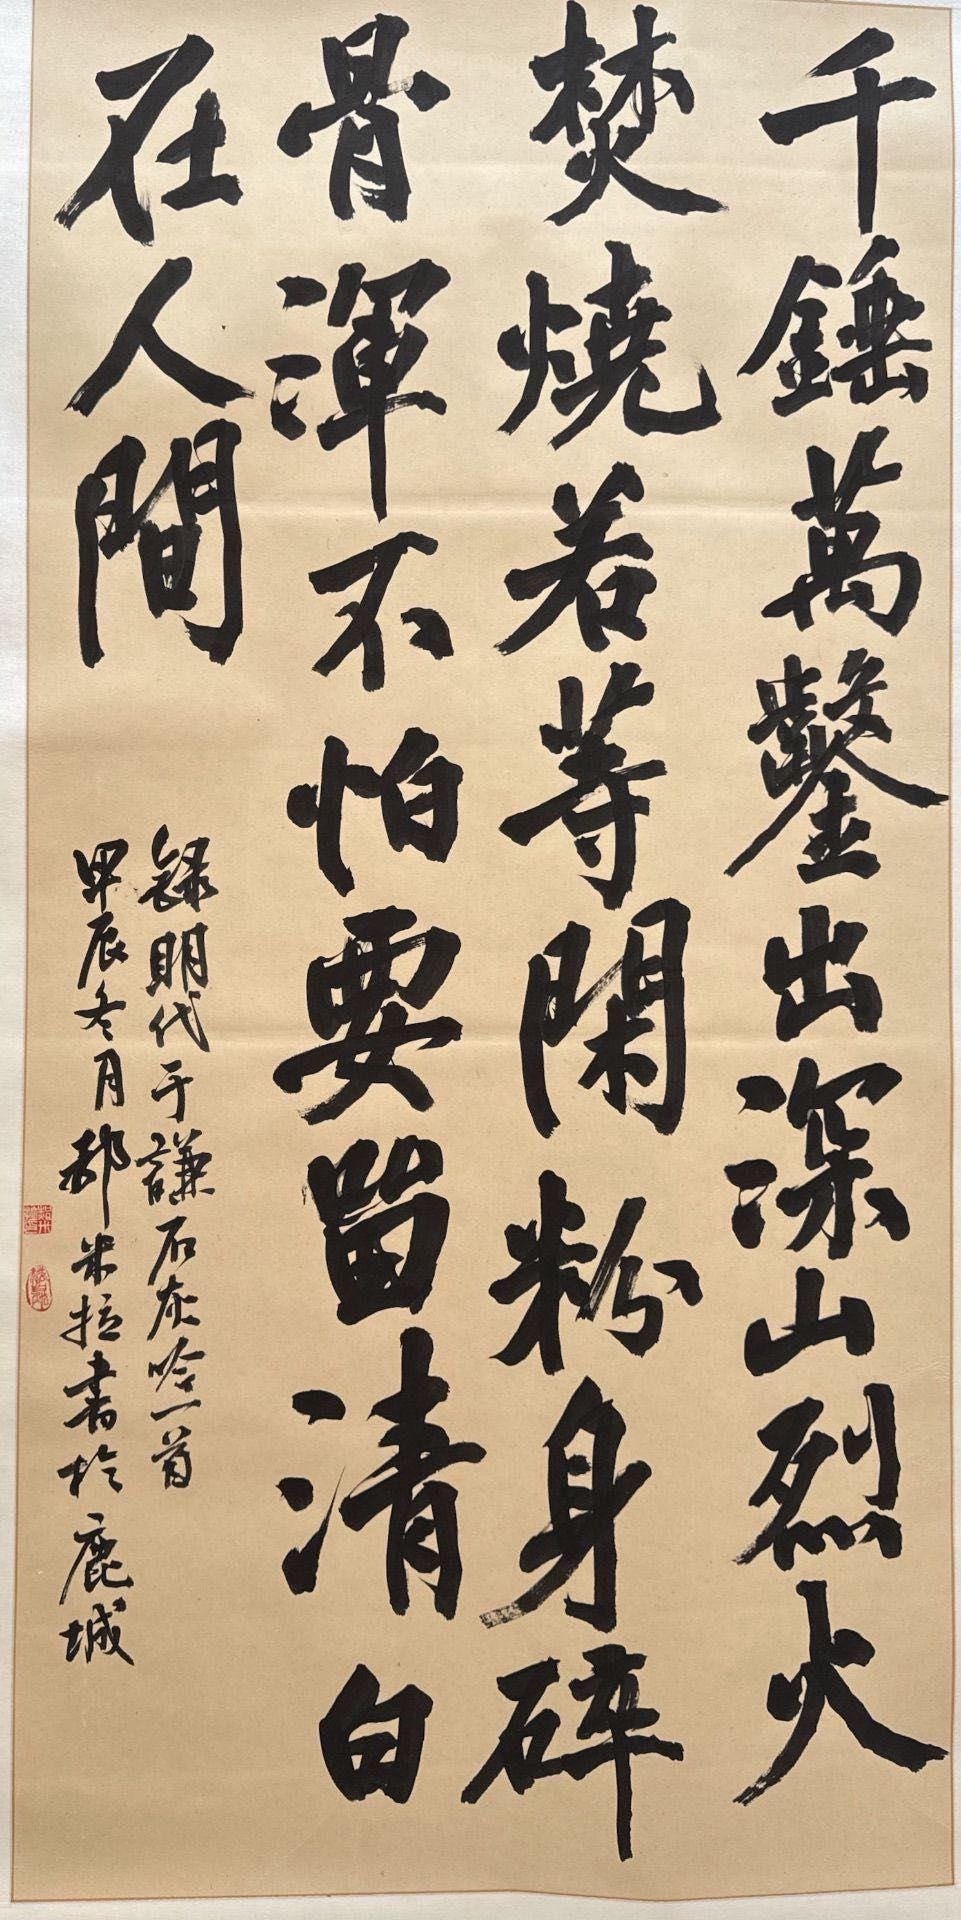 千錘萬鑿出深山烈火
焚燒若等閑粉身碎
骨渾不怕要留清白
在人間
録明代于謙石灰吟一首
甲辰冬月郝米拉書於鹿城